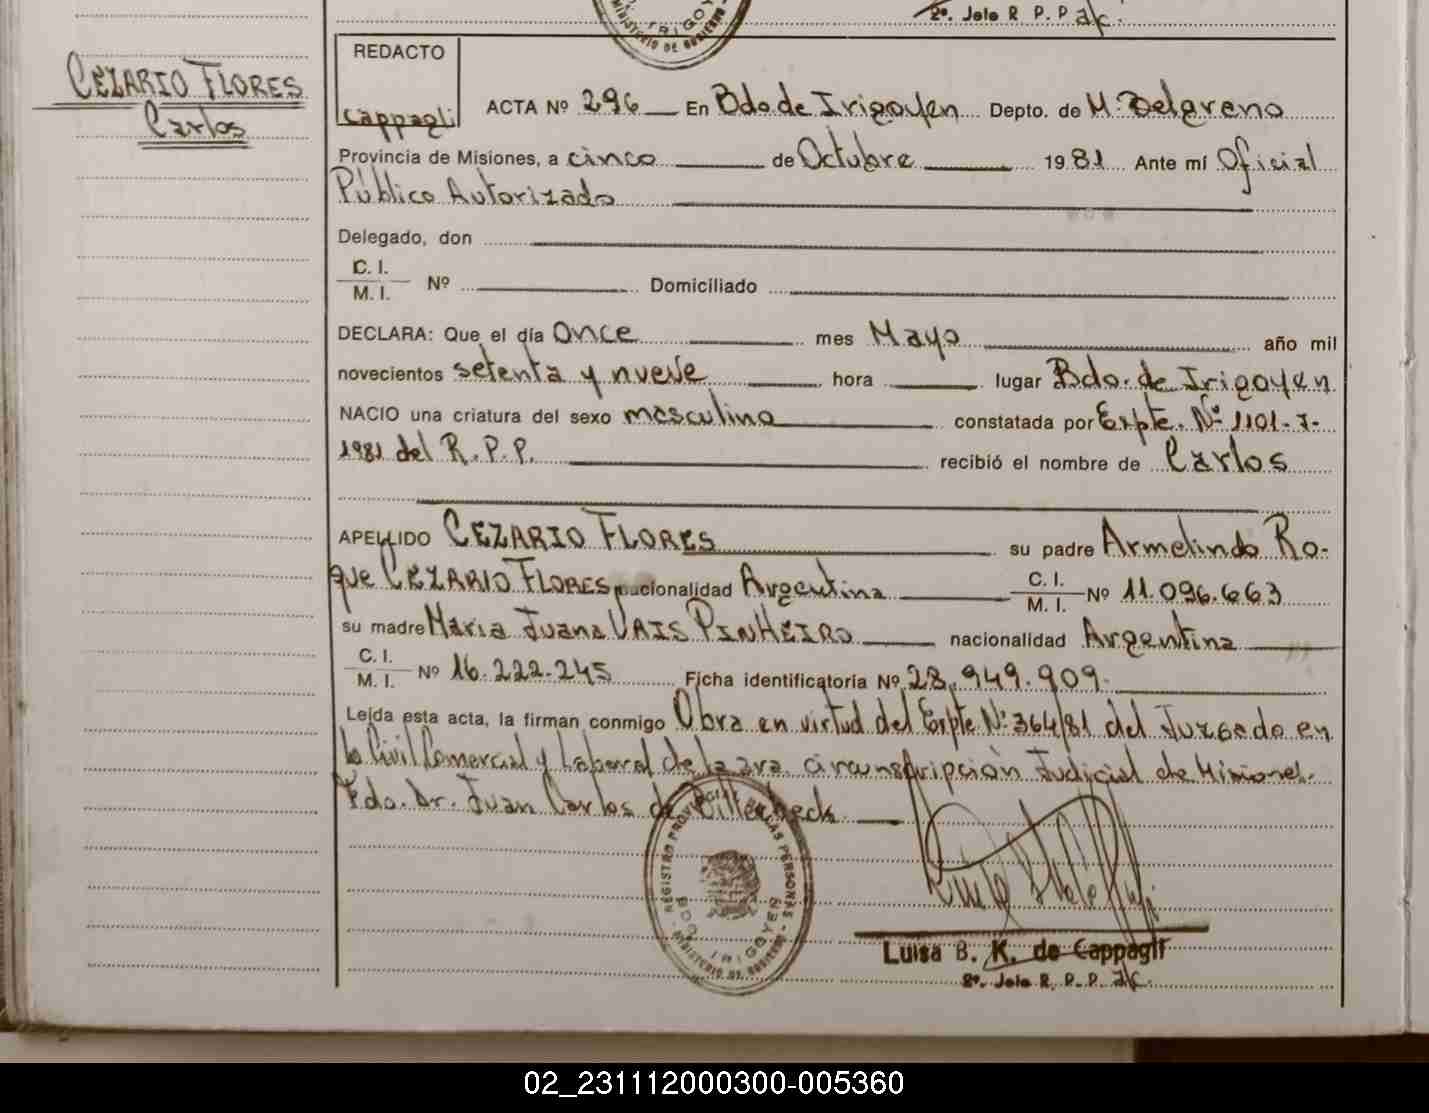 2º. Jefe R. P. P. a/c.
MINISTERIO DE GOBIERNO
IRIGOY
CEZARIO FLORES
Carlos
REDACTO
Cappagli
ACTA Nº 296 En Bdo. de Irigoyen Depto. de M. Belgrano
Provincia de Misiones, a cinco de Octubre 1981 Ante mí Oficial
Público Autorizado
Delegado, don
C. I.
M. I. Nº Domiciliado
DECLARA: Que el día Once mes Mayo año mil
novecientos setenta y nueve hora lugar Bdo. de Irigoyen
NACIO una criatura del sexo masculino constatada por Expte. Nº 1101-I-
1981 del R. P. P. recibió el nombre de Carlos
APELLIDO CEZARIO FLORES su padre Armelindo Ro-
que CEZARIO FLORES nacionalidad Argentina C. I. M. I. Nº 11.096.663
su madre Maria Juana VAIS PINHEIRO nacionalidad Argentina
C. I. M. I. Nº 16.222.245 Ficha identificatoria Nº 28.949.909.
Leída esta acta, la firman conmigo Obra en virtud del Expte Nº 364/81 del Juzgado en
lo Civil Comercial y Laboral de la 3ra. circunscripción Judicial de Misiones.
Fdo. Dr. Juan Carlos de
REGISTRO PROVINCIAL DE LAS PERSONAS
BDO. IRIGOYEN
MINISTERIO DE GOBIERNO
Luisa B. K. de Cappagli
2º. Jefe R. P. P. a/c.
02_231112000300-005360